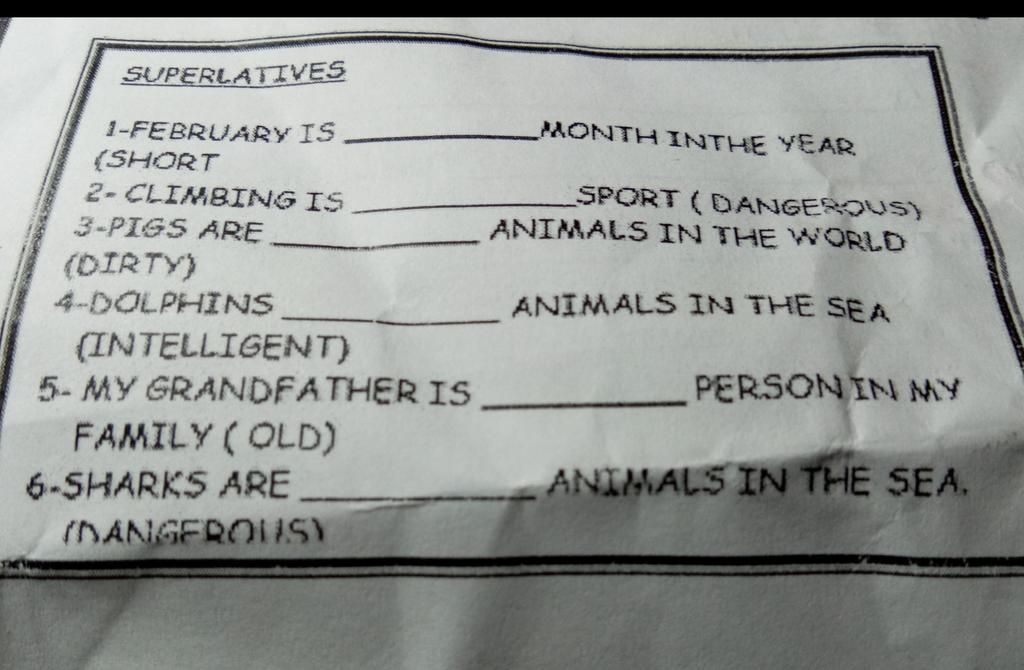 SUPERLATIVES
1-FEBRUARY IS __________ MONTH INTHE YEAR
(SHORT
2- CLIMBING IS __________ SPORT ( DANGEROUS)
3-PIGS ARE __________ ANIMALS IN THE WORLD
(DIRTY)
4-DOLPHINS __________ ANIMALS IN THE SEA
(INTELLIGENT)
5- MY GRANDFATHER IS __________ PERSON IN MY
FAMILY ( OLD)
6-SHARKS ARE __________ ANIMALS IN THE SEA.
(DANGEROUS)